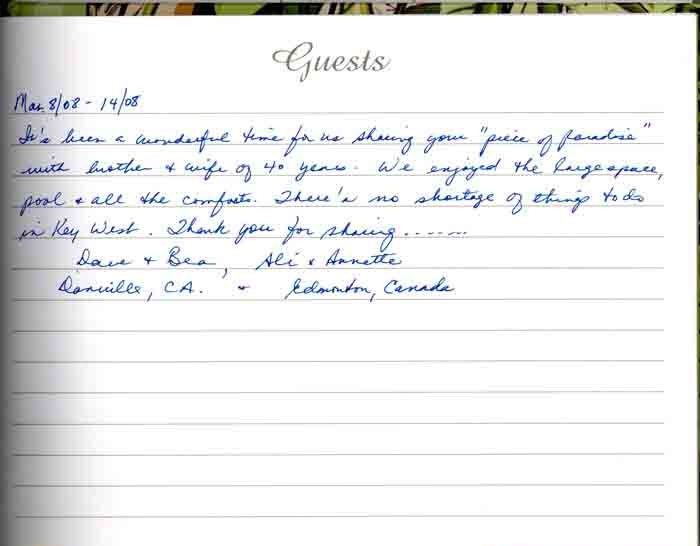 Guests
Mar. 8/08 - 14/08
It's been a wonderful time for us sharing your "piece of paradise"
with brother & wife of 40 years. We enjoyed the large space,
pool & all the comforts. There's no shortage of things to do
in Key West. Thank you for sharing.......
Dave & Bea, Ali & Annette
Danville, CA. & Edmonton, Canada